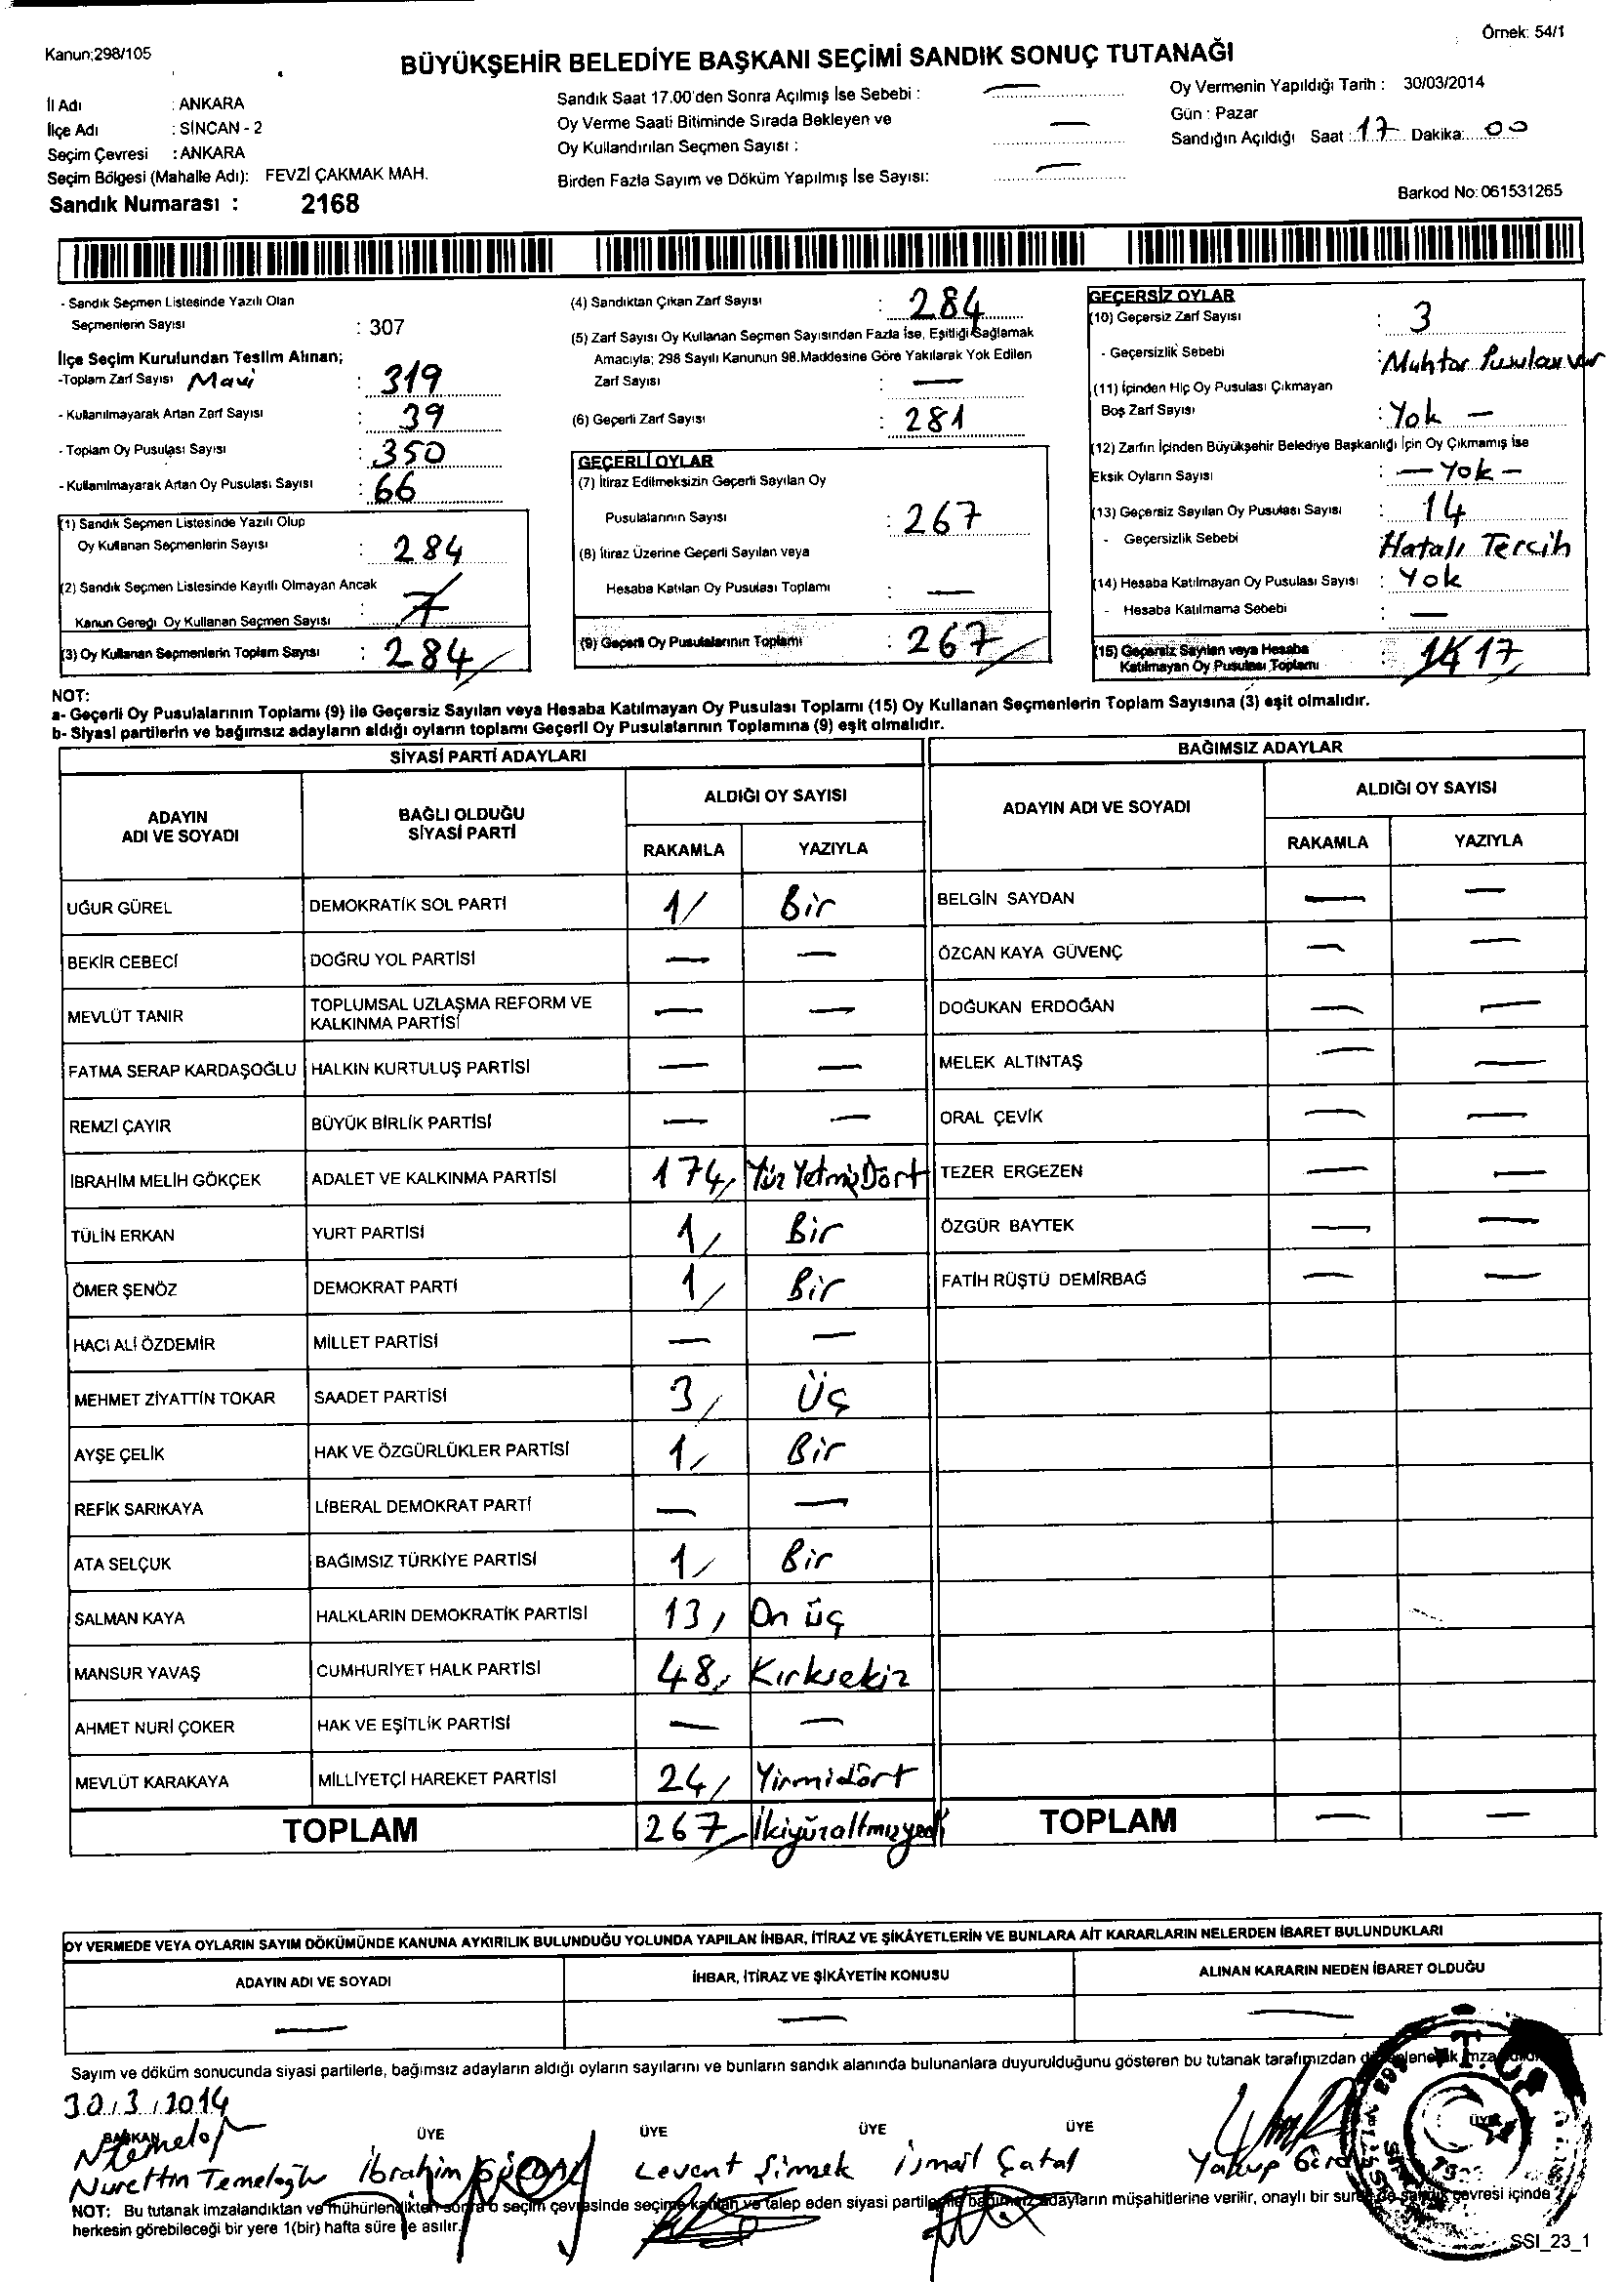 Örnek: 54/1
Kanun;298/105
BÜYÜKŞEHİR BELEDİYE BAŞKANI SEÇİMİ SANDIK SONUÇ TUTANAĞI
İl Adı : ANKARA
İlçe Adı : SİNCAN - 2
Seçim Çevresi : ANKARA
Seçim Bölgesi (Mahalle Adı): FEVZİ ÇAKMAK MAH.
Sandık Numarası : 2168
Sandık Saat 17.00'den Sonra Açılmış İse Sebebi : —
Oy Verme Saati Bitiminde Sırada Bekleyen ve
Oy Kullandırılan Seçmen Sayısı : —
Birden Fazla Sayım ve Döküm Yapılmış İse Sayısı: —
Oy Vermenin Yapıldığı Tarih : 30/03/2014
Gün : Pazar
Sandığın Açıldığı Saat : 17 Dakika: 00
Barkod No: 061531265
- Sandık Seçmen Listesinde Yazılı Olan
Seçmenlerin Sayısı : 307
İlçe Seçim Kurulundan Teslim Alınan;
-Toplam Zarf Sayısı Mavi : 319
- Kullanılmayarak Artan Zarf Sayısı : 39
- Toplam Oy Pusulası Sayısı : 350
- Kullanılmayarak Artan Oy Pusulası Sayısı : 66
(1) Sandık Seçmen Listesinde Yazılı Olup
Oy Kullanan Seçmenlerin Sayısı : 284
(2) Sandık Seçmen Listesinde Kayıtlı Olmayan Ancak
Kanun Gereği Oy Kullanan Seçmen Sayısı :
(3) Oy Kullanan Seçmenlerin Toplam Sayısı : 284
(4) Sandıktan Çıkan Zarf Sayısı : 284
(5) Zarf Sayısı Oy Kullanan Seçmen Sayısından Fazla İse, Eşitliği Sağlamak
Amacıyla; 298 Sayılı Kanunun 98.Maddesine Göre Yakılarak Yok Edilen
Zarf Sayısı : —
(6) Geçerli Zarf Sayısı : 281
GEÇERLİ OYLAR
(7) İtiraz Edilmeksizin Geçerli Sayılan Oy
Pusulalarının Sayısı : 267
(8) İtiraz Üzerine Geçerli Sayılan veya
Hesaba Katılan Oy Pusulası Toplamı : —
(9) Geçerli Oy Pusulalarının Toplamı : 267
GEÇERSİZ OYLAR
(10) Geçersiz Zarf Sayısı : 3
- Geçersizlik Sebebi : Muhtar Pusulası var
(11) İçinden Hiç Oy Pusulası Çıkmayan
Boş Zarf Sayısı : Yok —
(12) Zarfın İçinden Büyükşehir Belediye Başkanlığı İçin Oy Çıkmamış İse
Eksik Oyların Sayısı : — Yok —
(13) Geçersiz Sayılan Oy Pusulası Sayısı : 14
- Geçersizlik Sebebi Hatalı Tercih
(14) Hesaba Katılmayan Oy Pusulası Sayısı : Yok
- Hesaba Katılmama Sebebi : —
(15) Geçersiz Sayılan veya Hesaba
Katılmayan Oy Pusulası Toplamı : 17
NOT:
a- Geçerli Oy Pusulalarının Toplamı (9) ile Geçersiz Sayılan veya Hesaba Katılmayan Oy Pusulası Toplamı (15) Oy Kullanan Seçmenlerin Toplam Sayısına (3) eşit olmalıdır.
b- Siyasi partilerin ve bağımsız adayların aldığı oyların toplamı Geçerli Oy Pusulalarının Toplamına (9) eşit olmalıdır.
SİYASİ PARTİ ADAYLARI
ADAYIN ADI VE SOYADI BAĞLI OLDUĞU SİYASİ PARTİ ALDIĞI OY SAYISI
RAKAMLA YAZIYLA
UĞUR GÜREL DEMOKRATİK SOL PARTİ 1 Bir
BEKİR CEBECİ DOĞRU YOL PARTİSİ — —
MEVLÜT TANIR TOPLUMSAL UZLAŞMA REFORM VE KALKINMA PARTİSİ — —
FATMA SERAP KARDAŞOĞLU HALKIN KURTULUŞ PARTİSİ — —
REMZİ ÇAYIR BÜYÜK BİRLİK PARTİSİ — —
İBRAHİM MELİH GÖKÇEK ADALET VE KALKINMA PARTİSİ 174 Yüz YetmişDört
TÜLİN ERKAN YURT PARTİSİ 1 Bir
ÖMER ŞENÖZ DEMOKRAT PARTİ 1 Bir
HACI ALİ ÖZDEMİR MİLLET PARTİSİ — —
MEHMET ZİYATTİN TOKAR SAADET PARTİSİ 3 Üç
AYŞE ÇELİK HAK VE ÖZGÜRLÜKLER PARTİSİ 1 Bir
REFİK SARIKAYA LİBERAL DEMOKRAT PARTİ — —
ATA SELÇUK BAĞIMSIZ TÜRKİYE PARTİSİ 1 Bir
SALMAN KAYA HALKLARIN DEMOKRATİK PARTİSİ 13 On üç
MANSUR YAVAŞ CUMHURİYET HALK PARTİSİ 48 Kırksekiz
AHMET NURİ ÇOKER HAK VE EŞİTLİK PARTİSİ — —
MEVLÜT KARAKAYA MİLLİYETÇİ HAREKET PARTİSİ 24 Yirmidört
TOPLAM 267 İkiyüzaltmışyedi
BAĞIMSIZ ADAYLAR
ADAYIN ADI VE SOYADI ALDIĞI OY SAYISI
RAKAMLA YAZIYLA
BELGİN SAYDAN — —
ÖZCAN KAYA GÜVENÇ — —
DOĞUKAN ERDOĞAN — —
MELEK ALTINTAŞ — —
ORAL ÇEVİK — —
TEZER ERGEZEN — —
ÖZGÜR BAYTEK — —
FATİH RÜŞTÜ DEMİRBAĞ — —
TOPLAM — —
OY VERMEDE VEYA OYLARIN SAYIM DÖKÜMÜNDE KANUNA AYKIRILIK BULUNDUĞU YOLUNDA YAPILAN İHBAR, İTİRAZ VE ŞİKÂYETLERİN VE BUNLARA AİT KARARLARIN NELERDEN İBARET BULUNDUKLARI
ADAYIN ADI VE SOYADI İHBAR, İTİRAZ VE ŞİKÂYETİN KONUSU ALINAN KARARIN NEDEN İBARET OLDUĞU
— — —
Sayım ve döküm sonucunda siyasi partilerle, bağımsız adayların aldığı oyların sayılarını ve bunların sandık alanında bulunanlara duyurulduğunu gösteren bu tutanak tarafımızdan
30/3/2014
BAŞKAN ÜYE ÜYE ÜYE ÜYE ÜYE
Nurettin Temeloğlu İbrahim Levent Şimşek İsmail Çatal Yakup
NOT: Bu tutanak imzalandıktan ve mühürlendikten sonra o seçim çevresinde seçime katılan ve talep eden siyasi partilerle bağımsız adayların müşahitlerine verilir, onaylı bir sureti de sandık çevresi içinde
herkesin görebileceği bir yere 1(bir) hafta süre ile asılır.
SSI_23_1